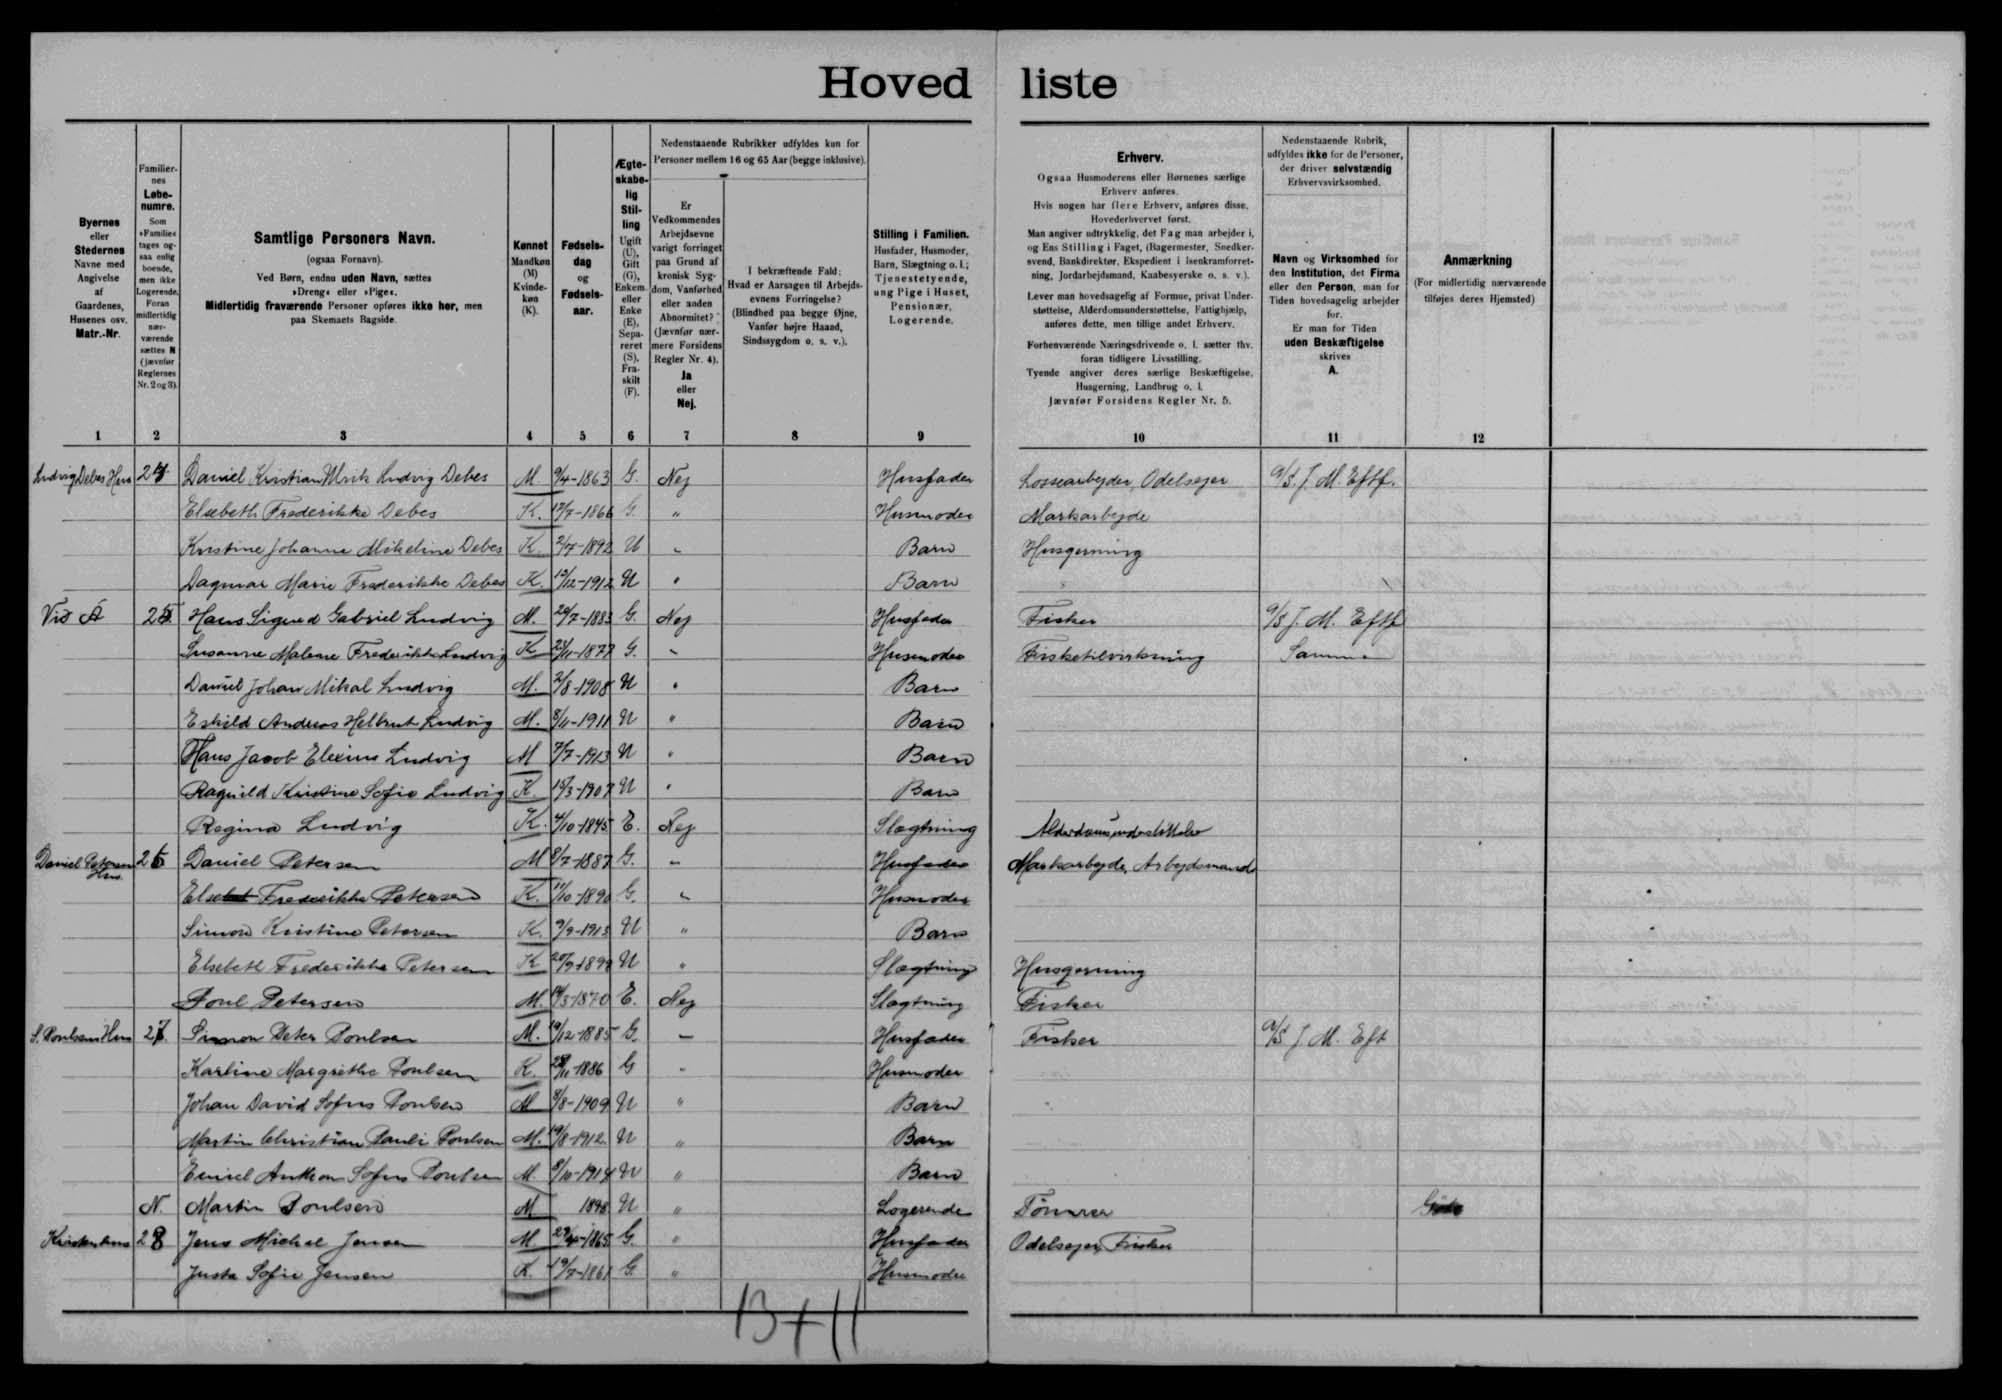 Hoved liste
Byernes eller Stedernes Navne med Angivelse af Gaardenes, Husenes osv. Matr.-Nr.
Familiernes Løbenumre. Som »Familie« tages ogsaa enlig boende, men ikke Logerende. Foran midlertidig nærværende sættes N (jævnfør Reglernes Nr. 2 og 3).
Samtlige Personers Navn. (ogsaa Fornavn). Ved Børn, endnu uden Navn, sættes »Dreng« eller »Pige«. Midlertidig fraværende Personer opføres ikke her, men paa Skemaets Bagside.
Kønnet Mandkøn (M) Kvindekøn (K).
Fødselsdag og Fødselsaar.
Ægteskabelig Stilling Ugift (U), Gift (G), Enkem. eller Enke (E), Separeret (S), Fraskilt (F).
Nedenstaaende Rubrikker udfyldes kun for Personer mellem 16 og 65 Aar (begge inklusive).
Er Vedkommendes Arbejdsevne varigt forringet paa Grund af kronisk Sygdom, Vanførhed eller anden Abnormitet? (Jævnfør nærmere Forsidens Regler Nr. 4). Ja eller Nej.
I bekræftende Fald: Hvad er Aarsagen til Arbejdsevnens Forringelse? (Blindhed paa begge Øjne, Vanfør højre Haand, Sindssygdom o. s. v.).
Stilling i Familien. Husfader, Husmoder, Barn, Slægtning o. l.; Tjenestetyende, ung Pige i Huset, Pensionær, Logerende.
Erhverv.
Ogsaa Husmoderens eller Børnenes særlige Erhverv anføres.
Hvis nogen har flere Erhverv, anføres disse, Hovederhvervet først.
Man angiver udtrykkelig, det Fag man arbejder i, og Ens Stilling i Faget, (Bagermester, Snedkersvend, Bankdirektør, Ekspedient i Isenkramforretning, Jordarbejdsmand, Kaabesyerske o. s. v.).
Lever man hovedsagelig af Formue, privat Understøttelse, Alderdomsunderstøttelse, Fattighjælp, anføres dette, men tillige andet Erhverv.
Forhenværende Næringsdrivende o. l. sætter thv. foran tidligere Livsstilling.
Tyende angiver deres særlige Beskæftigelse, Husgerning, Landbrug o. l.
Jævnfør Forsidens Regler Nr. 5.
Nedenstaaende Rubrik, udfyldes ikke for de Personer, der driver selvstændig Erhvervsvirksomhed.
Navn og Virksomhed for den Institution, det Firma eller den Person, man for Tiden hovedsagelig arbejder for.
Er man for Tiden uden Beskæftigelse skrives A.
Anmærkning (For midlertidig nærværende tilføjes deres Hjemsted)
1 2 3 4 5 6 7 8 9 10 11 12
Ludvig Debes Hus 24 Daniel Kristian Ulrik Ludvig Debes M. 9/4-1863 G. Nej Husfader Lossearbejder, Odelsejer A/S. J. M. Eftf.
Elsebeth Frederikke Debes K. 17/7-1866 G. " Husmoder Markarbejde
Kristine Johanne Mikeline Debes K. 2/7-1892 U " Barn Husgerning
Dagmar Marie Frederikke Debes K. 12/12-1912 U " Barn
Vid Á 25 Hans Sigurd Gabriel Ludvig M. 20/7-1883 G. Nej Husfader Fisker A/S J. M. Eftf
Susanne Malene Frederikke Ludvig K 23/11-1877 G. " Husmoder Fisketilvirkning Samme
Daniel Johan Mikal Ludvig M. 2/8-1908 U " Barn
Eskild Andreas Helbrut Ludvig M. 8/11-1911 U " Barn
Hans Jacob Elexius Ludvig M 7/7-1913 U " Barn
Ragnild Kristine Sofie Ludvig K. 15/3-1907 U " Barn
Regina Ludvig K. 4/10-1845 E. Nej Slægtning Alderdomsunderstøttelse
Daniel Petersen Hus 26 Daniel Petersen M 8/7-1887 G. " Husfader Markarbejde, Arbejdsmand
Else Frederikke Petersen K. 11/10-1890 G. " Husmoder
Simone Kristine Petersen K. 9/9-1913 U " Barn
Elsebeth Frederikke Petersen K 20/9-1899 U " Slægtning Husgerning
Poul Petersen M. 14/3-1870 E. Nej Slægtning Fisker
S. Poulsens Hus 27 Simon Peter Poulsen M. 19/12-1885 G. " Husfader Fisker A/S J. M. Eft
Karline Margrethe Poulsen K. 28/11-1886 G " Husmoder
Johan David Sofus Poulsen M 8/8-1909 U " Barn
Martin Christian Pauli Poulsen M. 19/8-1912 U " Barn
Emiel Anthon Sofus Poulsen M. 8/10-1914 U " Barn
N. Martin Poulsen M 1898 U " Logerende Tømrer
28 Jens Michel Jensen M. 1865 G. " Husfader Odelsejer, Fisker
Justa Sofie Jensen K. 19/7-1861 G. " Husmoder
13+11